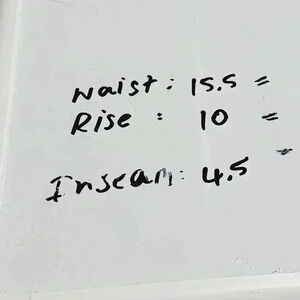 Waist: 15.5 =
Rise : 10 =
Inseam: 4.5 =